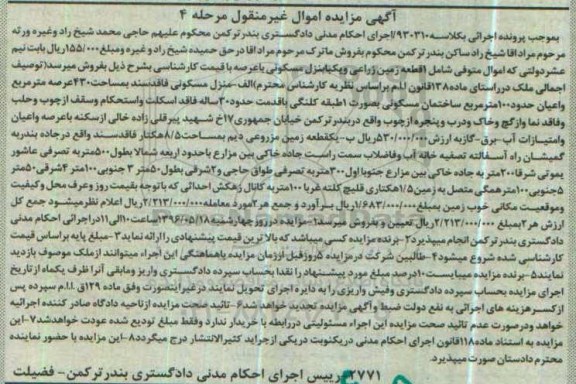 آگهی مزایده اموال غیرمنقول مرحله ۴
بموجب پرونده اجرائی بکلاسه ۹۳۰۳۱۰/اجرای احکام مدنی دادگستری بندرترکمن محکوم علیهم حاجی محمد شیخ راد وغیره ورثه
مرحوم مراد اقا شیخ راد ساکن بندرترکمن محکوم بفروش ماترک مرحوم مراد اقا درحق حمیده شیخ راد و غیره ومبلغ ۱۵۵/۰۰۰ریال بابت نیم
عشردولتی که اموال متوفی شامل ۱قطعه زمین زراعی ویکبابنزل مسکونی باعرصه با قیمت کارشناسی بشرح ذیل بفروش میرسد(توصیف
اجمالی ملک درراستای ماده۱۳۸قانون ا.ا.م براساس نظریه کارشناس محترم)الف-منزل مسکونی فاقدسند بمساحت۴۳۰عرصه مترمربع
واعیان حدود۱۰۰مترمربع ساختمان مسکونی بصورت ۱طبقه کلنگی باقدمت حدود۳۰ساله فاقد اسکلت واستحکام وسقف ازچوب وحلب
وفاقد نما وازگچ وخاک ودرب وپنجره ازچوب واقع دربندرترکمن خیابان جمهوری۱۷خ شهید پیرقلی زاده خالی ازسکنه باعرصه واعیان
وامتیازات آب-برق-گازبه ارزش ۵۳۰/۰۰۰/۰۰۰ریال ب-یکقطعه زمین مزروعی دیم بمساحت۸/۵هکتار فاقدسند واقع درجاده بندربه
گمیشان راه آسفالته تصفیه خانه آب وفاضلاب سمت راست جاده خاکی بین مزارع باحدود اربعه شمالا بطول۵۰۰متربه تصرفی عاشور
یموتی شرقا۲۰۰متر به جاده خاکی بین مزارع جنوبااول۳۰۰متربه تصرفی طواق حاجی و۲شرقی بطول۵۰متر ۳ جنوبی ۱۰۰متر ۴شرقی۵۰متر
۵جنوبی۱۰۰مترهمگی متصل به زمین۱/۵هکتاری قلیچ کلته غربا۱۰۰متربه کانال زهکش احداثی که باتوجه بقیمت روز وعرف محل وکیفیت
وموقعیت مکانی خوب زمین بمبلغ ۱/۶۸۳/۰۰۰/۰۰۰ریال برآورد و جمع هر ۲مورد معامله۲/۲۱۳/۰۰۰/۰۰۰ریال اعلام نظرمیشود جمع کل
ارزش هر ۲بمبلغ ۲/۲۱۳/۰۰۰/۰۰۰ریال تعیین و بفروش میرسد۱-مزایده در روزچهارشنبه۱۳۹۶/۰۵/۱۸ساعت۱۰الی۱۱دراجرائی احکام مدنی
دادگستری بندرترکمن انجام میپذیرد۲-برنده مزایده کسی میباشد که بالاترین قیمت پیشنهادی را ارائه نماید۳-مبلغ پایه براساس قیمت
کارشناسی شده شروع میشود۴-طالبین شرکت درمزایده ۵روزقبل اززمان مزایده باهماهنگی این اجراء میتوانند ازملک موصوف بازدید
نمایند۵-برنده مزایده میبایست۱۰درصد مبلغ مورد پیشنهاد را نقدا بحساب سپرده دادگستری واریز ومابقی آنرا ظرف یکماه ازتاریخ
اجرای مزایده بحساب سپرده دادگستری وفیش واریزی را به دایره اجرای تحویل نمایند درغیراینصورت وفق ماده ۱۲۹ق.ا.ا.م سپرده پس
ازکسرهزینه های اجرائی به نفع دولت ضبط وآگهی مزایده تجدید خواهد شد۶-تائید صحت مزایده ازناحیه دادگاه صادر کننده اجرائیه
خواهد ودرصورت عدم تائید صحت مزایده این اجراء مسئولیتی دررابطه با خریدار ندارد وفقط مبلغ تودیع شده عودت خواهدشد۷-این
مزایده به استناد ماده۱۱۸قانون اجرای احکام مدنی دریکنوبت دریکی ازجراید کثیرالانتشار درج میگردد۸-این مزایده با حضور نماینده
محترم دادستان صورت میپذیرد.
۲۷۷۱ رییس اجرای احکام مدنی دادگستری بندرترکمن- فضیلت